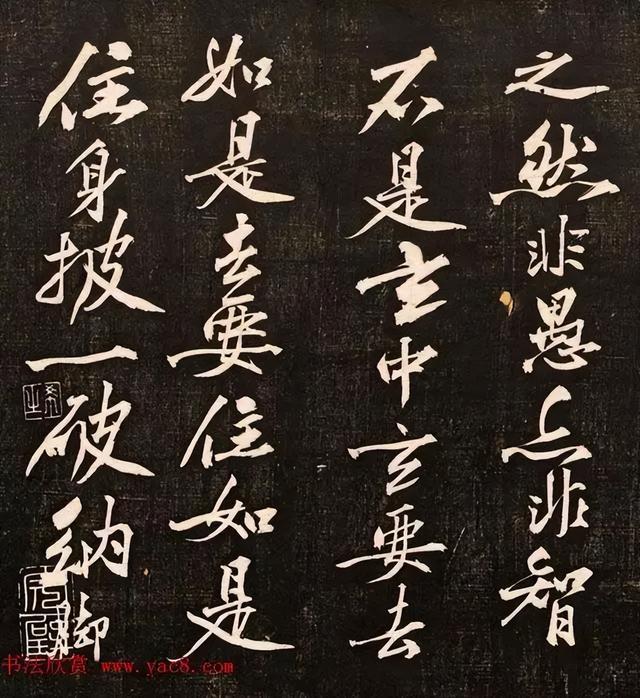 之然非愚亦非智
不是玄中玄要去
如是去要住如是
住身披一破納脚
书法欣赏 www.yac8.com